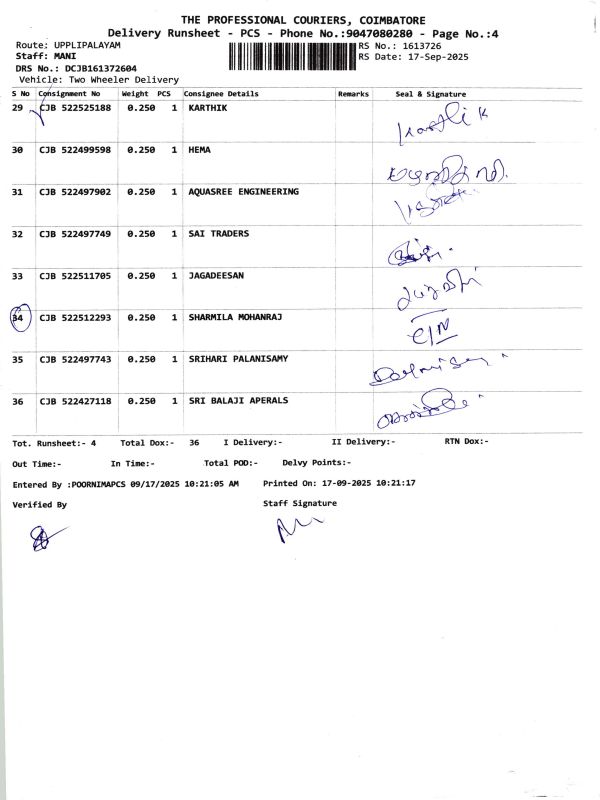 THE PROFESSIONAL COURIERS, COIMBATORE
Delivery Runsheet - PCS - Phone No.:9047080280 - Page No.:4
Route: UPPLIPALAYAM RS No.: 1613726
Staff: MANI RS Date: 17-Sep-2025
DRS No.: DCJB161372604
Vehicle: Two Wheeler Delivery
S No Consignment No Weight PCS Consignee Details Remarks Seal & Signature
29 CJB 522525188 0.250 1 KARTHIK Karthik
30 CJB 522499598 0.250 1 HEMA
31 CJB 522497902 0.250 1 AQUASREE ENGINEERING
32 CJB 522497749 0.250 1 SAI TRADERS
33 CJB 522511705 0.250 1 JAGADEESAN
34 CJB 522512293 0.250 1 SHARMILA MOHANRAJ
35 CJB 522497743 0.250 1 SRIHARI PALANISAMY
36 CJB 522427118 0.250 1 SRI BALAJI APERALS
Tot. Runsheet:- 4 Total Dox:- 36 I Delivery:- II Delivery:- RTN Dox:-
Out Time:- In Time:- Total POD:- Delvy Points:-
Entered By :POORNIMAPCS 09/17/2025 10:21:05 AM Printed On: 17-09-2025 10:21:17
Verified By Staff Signature